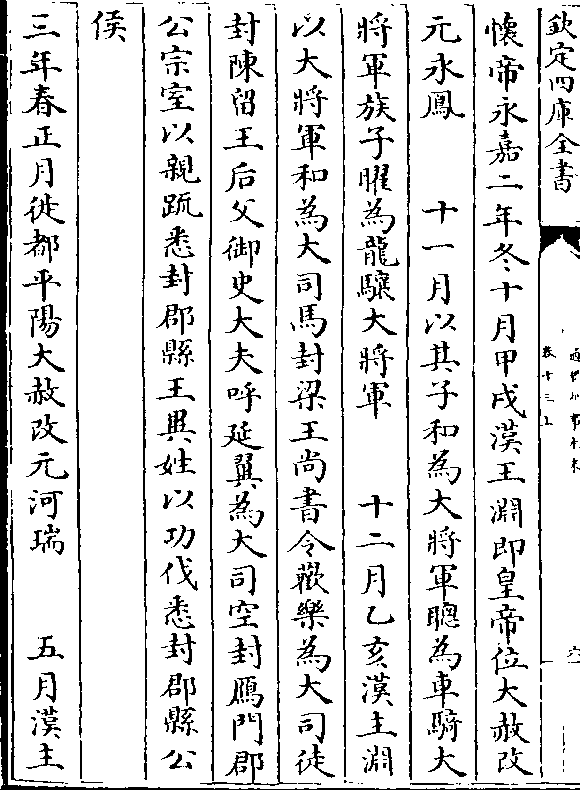 欽定四庫全書
卷十三上
懷帝永嘉二年冬十月甲戌漢王淵即皇帝位大赦改
元永鳳　十一月以其子和為大將軍聰為車騎大
將軍族子曜為龍驤大將軍　十二月乙亥漢主淵
以大將軍和為大司馬封梁王尚書令歡樂為大司徒
封陳留王后父御史大夫呼延翼為大司空封鴈門郡
公宗室以親疏悉封郡縣王異姓以功伐悉封郡縣公
侯
三年春正月徙都平陽大赦改元河瑞　五月漢主